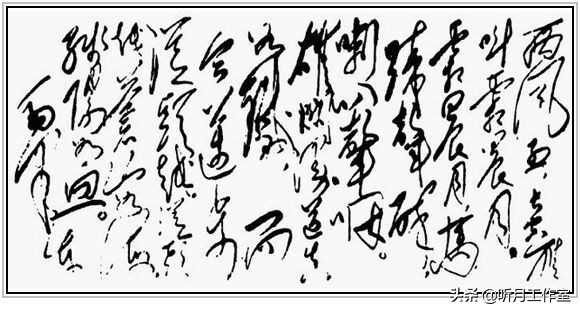 西风烈 长空雁
叫霜晨月。
霜晨月 马
蹄声碎
喇叭声咽。
雄关漫道真
如铁 而
今迈步
从头越 从头
越苍山如海
残阳如血。
头条 @听月工作室